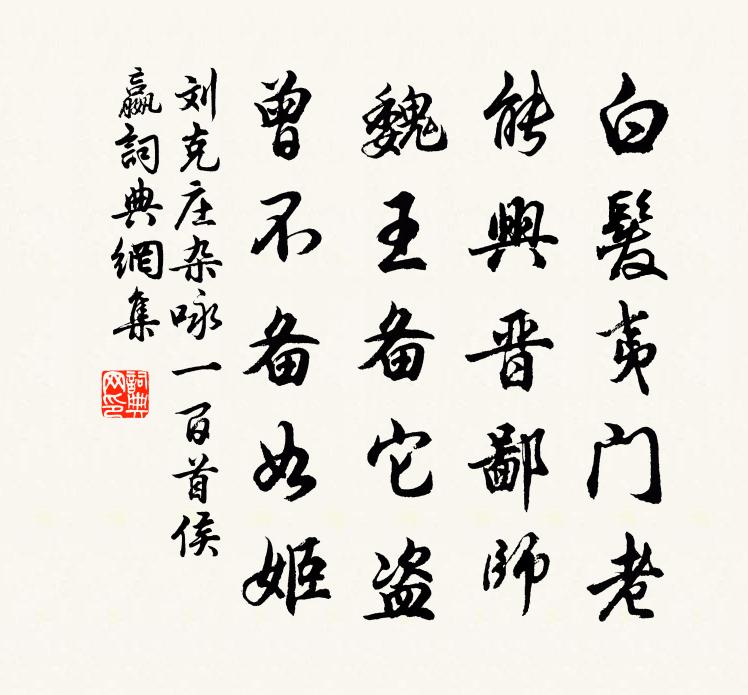 白髮夷门老
能興晋鄙師
魏王备它盗
曾不备如姬
刘克庄杂咏一百首侯
嬴詞典網集
詞典
网印